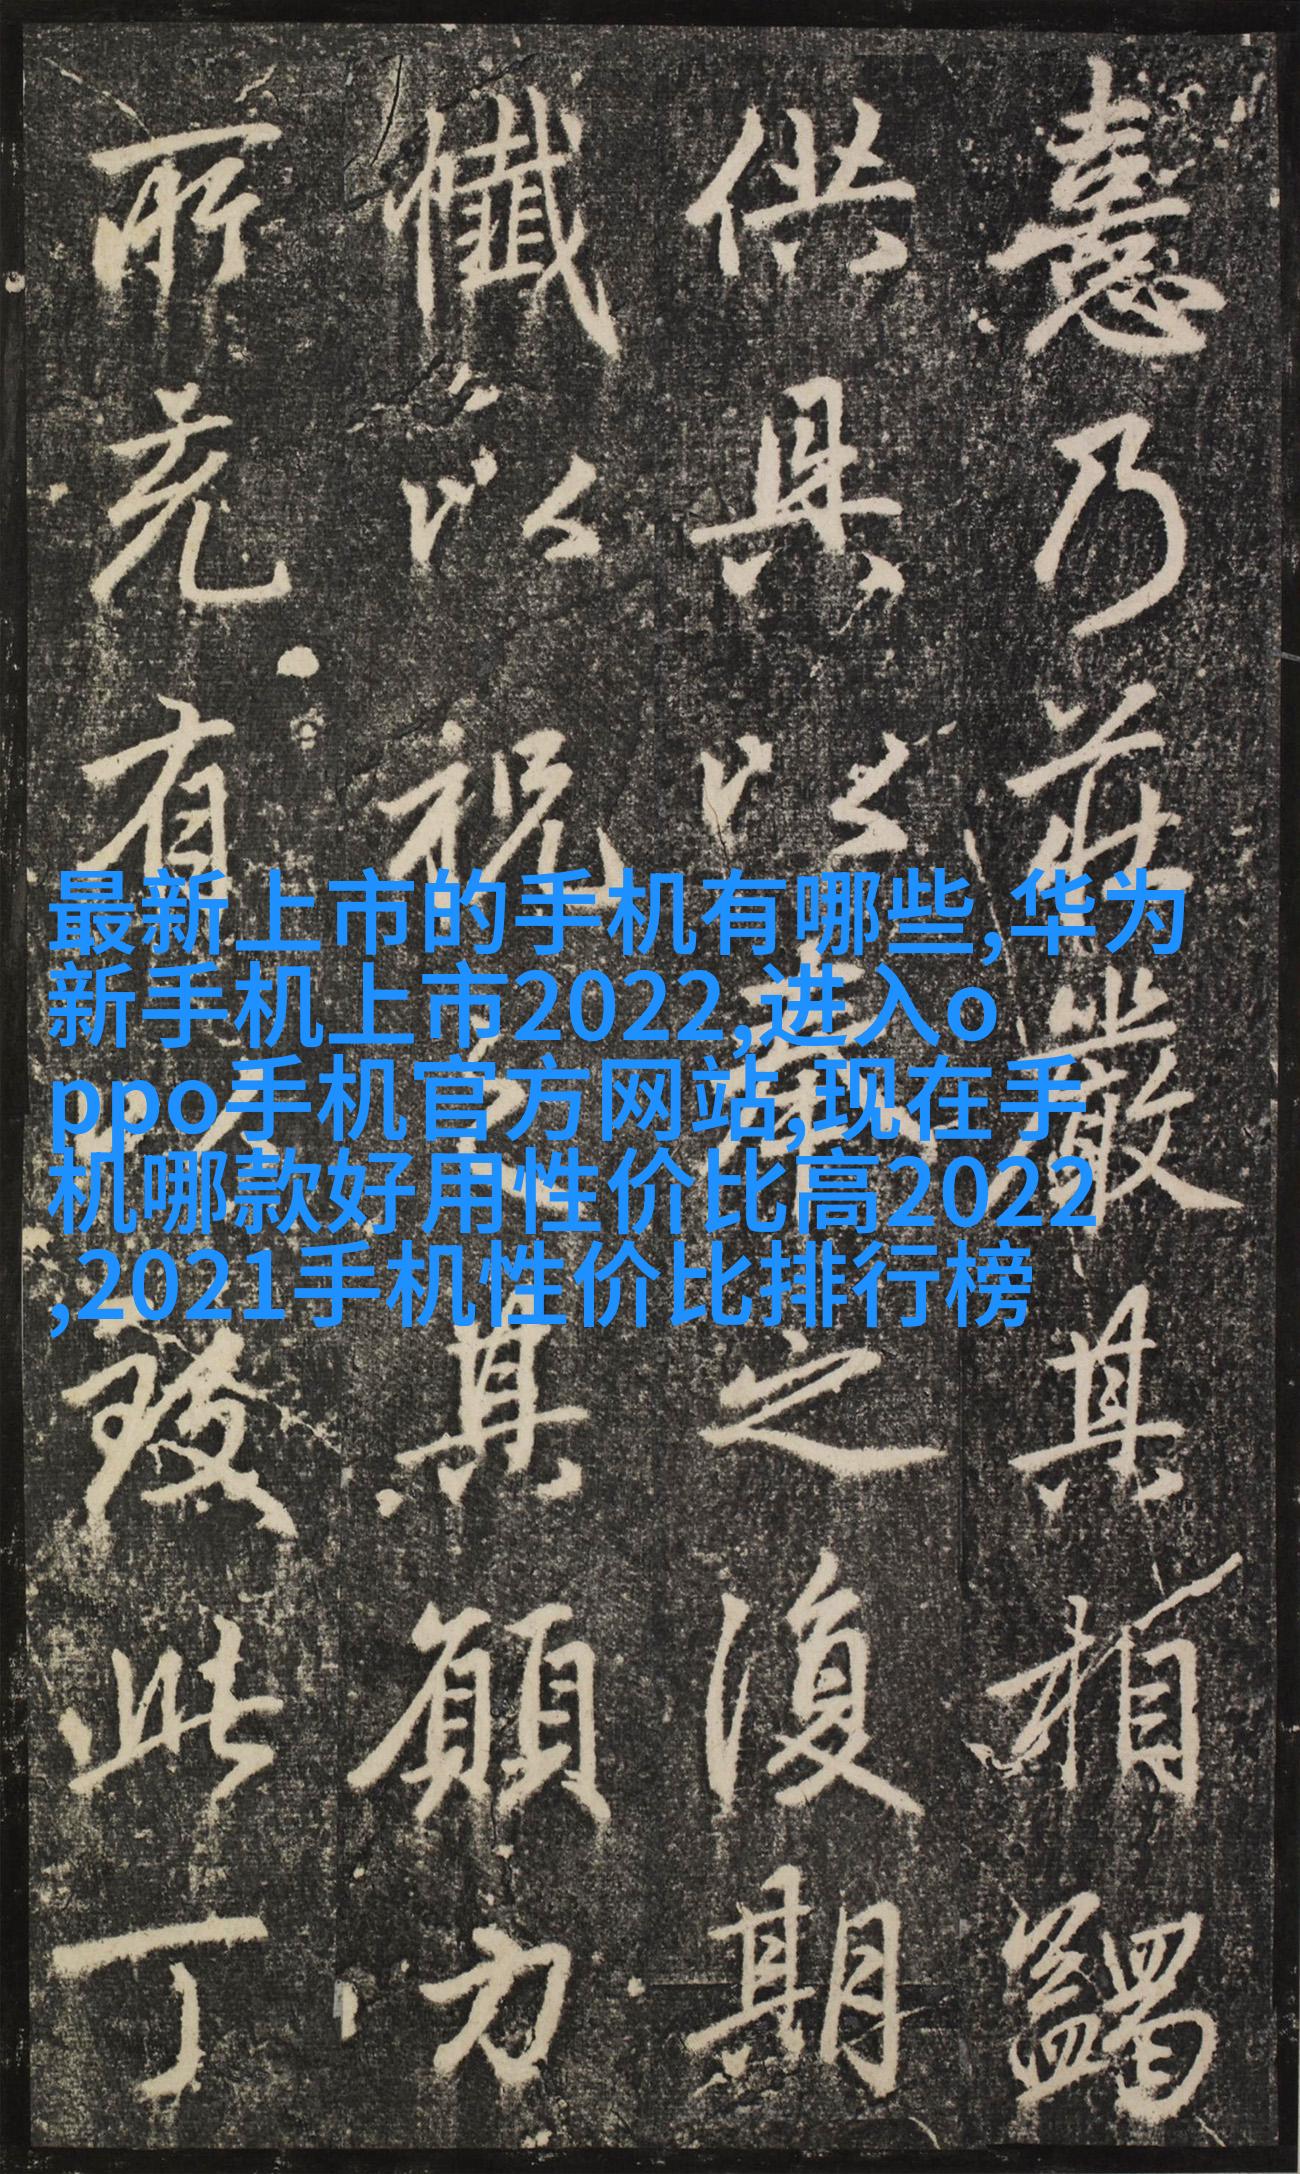 乃莊嚴其相蠲
供具以表之復期
懺以祝其願方
所有以此丁
最新上市的手机有哪些,华为
新手机上市2022,进入o
ppo手机官方网站,现在手
机哪款好用性价比高2022
,2021手机性价比排行榜